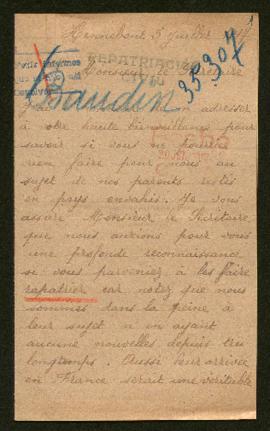 1
Hennebont 5 Juillet 17
REPATRIACION
CIVIL
Monsieur le Secrétaire
Baudin
35.307
adresser
à votre haute bienveillance pour
savoir si vous ne pourriez
rien faire pour nous au
sujet de nos parents restés
en pays envahis. Je vous
assure Monsieur le Secrétaire
que nous aurions pour vous
une profonde reconnaissance
si vous parveniez à les faire
rapatrier car notez que nous
sommes dans la peine à
leur sujet n'en ayant
aucune nouvelles depuis très
longtemps. Aussi leur arrivée
en France serait une véritable